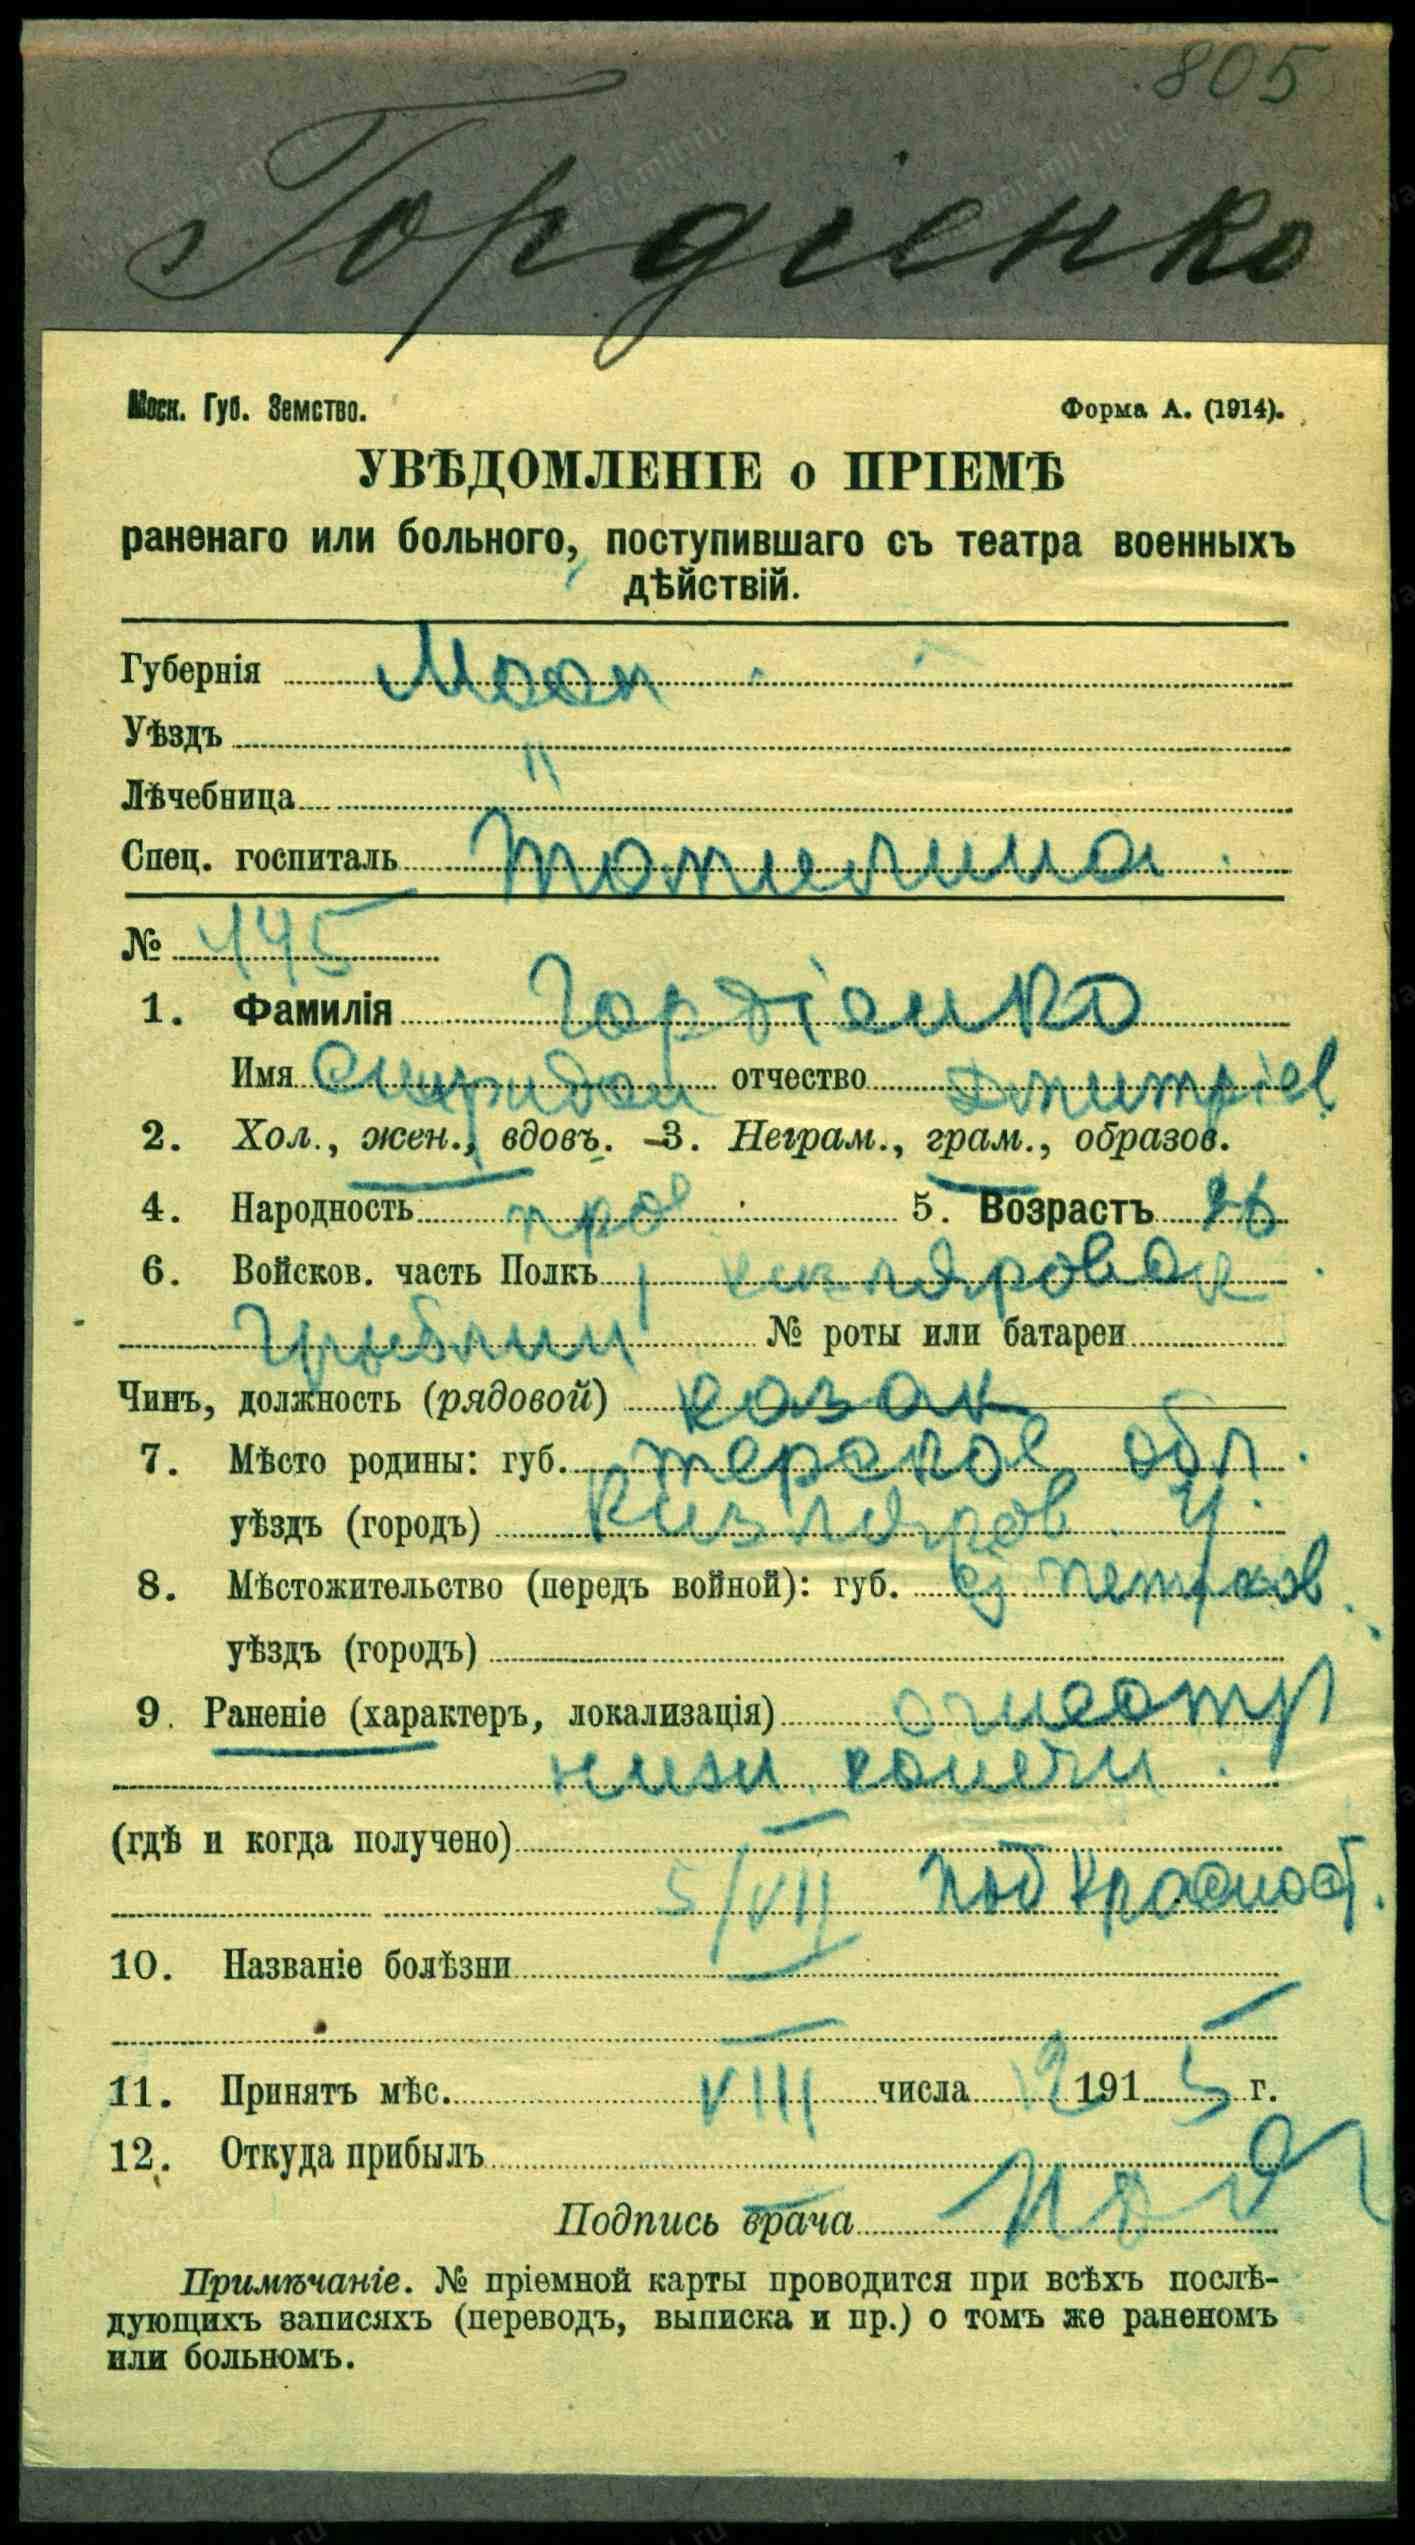 805
Гордіенко
Моск. Губ. Земство. Форма А. (1914).
УВѢДОМЛЕНІЕ о ПРІЕМѢ
раненаго или больного, поступившаго съ театра военныхъ
дѣйствій.
Губернія Моск
Уѣздъ
Лѣчебница
Спец. госпиталь
№ 445
1. Фамилія Гордіенко
Имя Спиридон отчество Дмитріев
2. Хол., жен., вдовъ. 3. Неграм., грам., образов.
4. Народность пр 5. Возрастъ 26
6. Войсков. часть Полкъ 1 кизляровск
Гребний № роты или батареи
Чинъ, должность (рядовой) казак
7. Мѣсто родины: губ. терской обл.
уѣздъ (городъ) Кизляров. у.
8. Мѣстожительство (передъ войной): губ.
уѣздъ (городъ)
9. Раненіе (характеръ, локализація) огнестр
нижн. конечн.
(гдѣ и когда получено)
5/VII под Красност.
10. Названіе болѣзни
11. Принятъ мѣс. VIII числа 12 1915 г.
12. Откуда прибылъ
Подпись врача
Примѣчаніе. № пріемной карты проводится при всѣхъ послѣ-
дующихъ записяхъ (переводъ, выписка и пр.) о томъ же раненомъ
или больномъ.